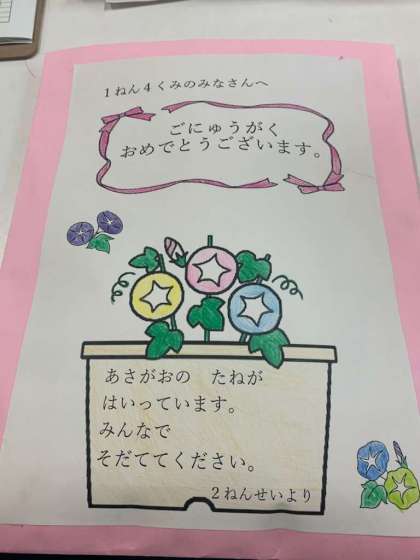 １ねん４くみのみなさんへ
ごにゅうがく
おめでとうございます。
あさがおの　たねが
はいっています。
みんなで
そだててください。
２ねんせいより